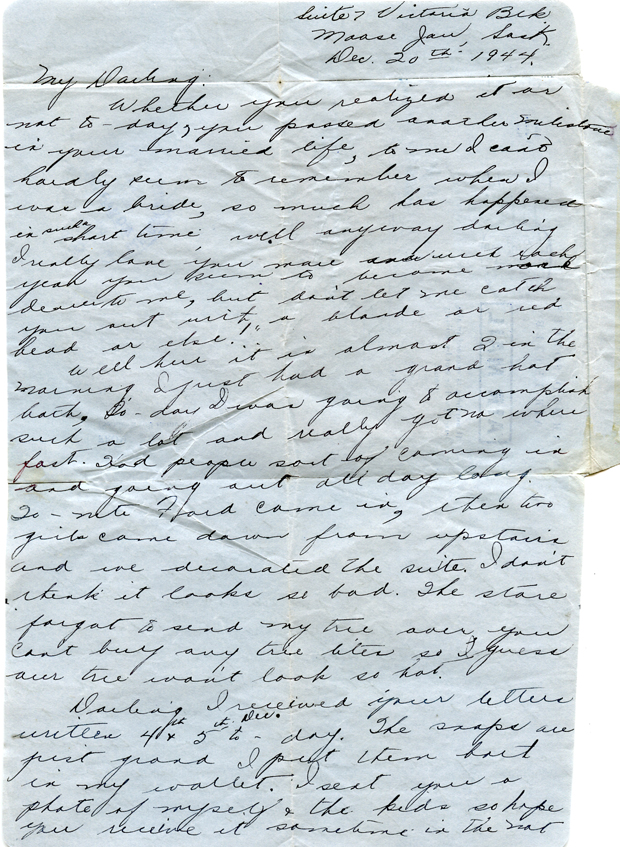 Suite 7 Victoria Blk
Moose Jaw, Sask.
Dec. 20th 1944.
My Darling:
Whether you realized it or
not to-day, you passed another milestone
in your married life, to me I can't
hardly seem to remember when I
was a bride, so much has happened
in such short time well anyway darling
I really love you more and each
year you seem to become
dearer to me, but don't let me catch
you out with a blonde or red
head or else!!"
Well here it is almost 2 in the
morning & just had a grand hot
bath. To-day I was going to accomplish
such a lot and really got no where
fast. Had people sort of coming in
and going out all day long.
To-nite came in, then two
girls came down from upstairs
and we decorated the suite. I don't
think it looks so bad. The store
forgot to send my tree over, you
cant buy any tree lites so I guess
our tree won't look so hot.
Darling I received your letters
written 4th & 5th Dec. to-day. The snaps are
just grand I put them
in my wallet. I sent you a
photo of myself & the kids so hope
you receive it sometime in the not